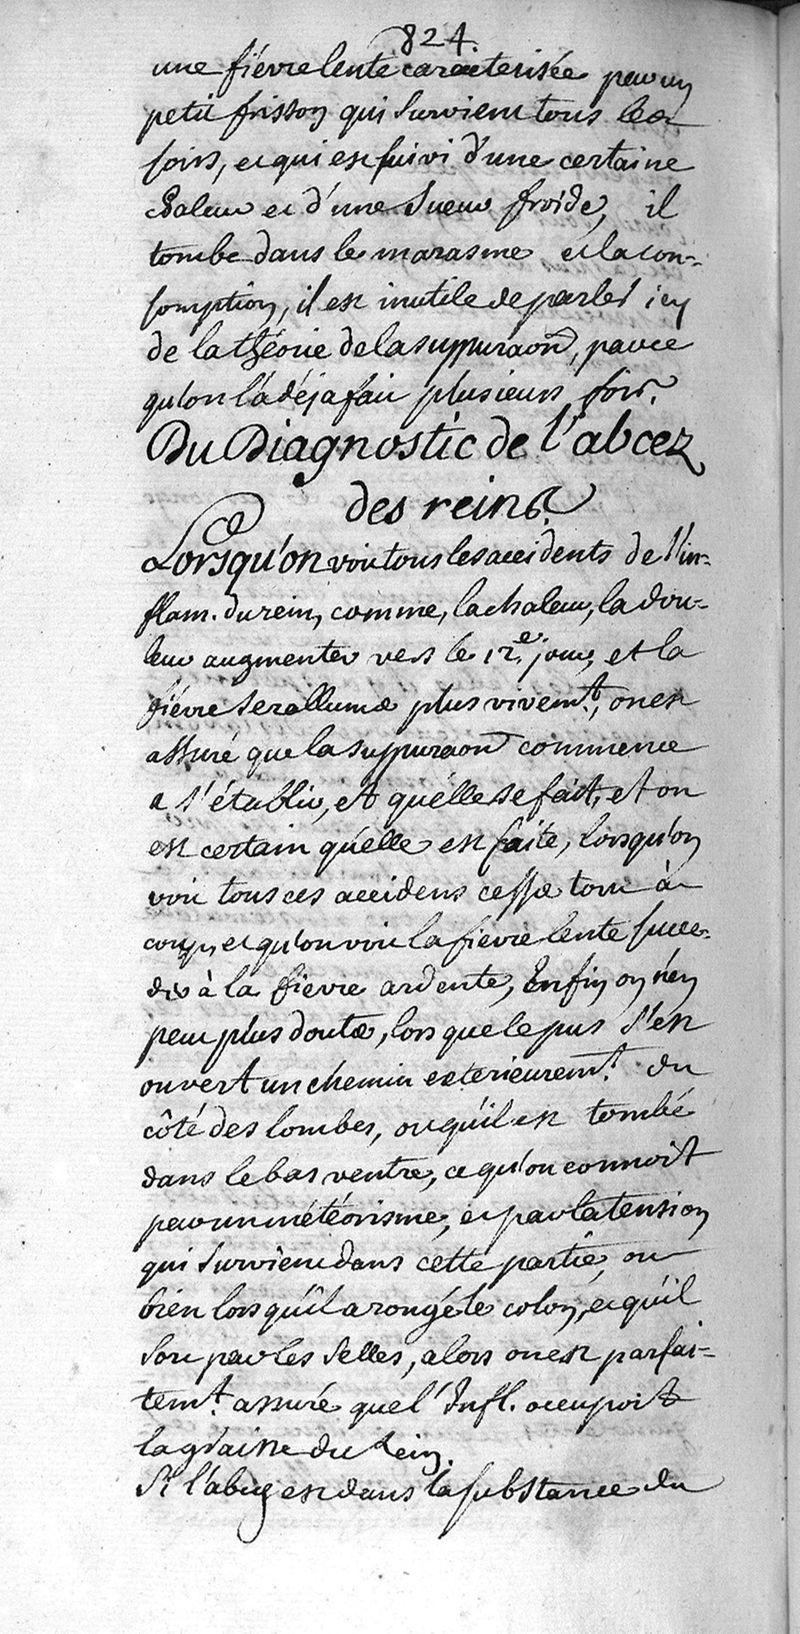 824.
une fiévre lente caracterisée par un
petit frisson qui survient tous les
soirs, et qui est suivi d'une certaine
chaleur et d'une sueur froide, il
tombe dans le marasme et la con-
somption, il est inutile de parler icy
de la théorie de la suppuraon, parce
qu'on l'a déja fait plusieurs fois.
Du Diagnostic de l'abcez
des reins.
Lorsqu'on voit tous les accidents de l'in-
flam. du rein, comme, la chaleur, la dou-
leur augmenter vers le 12e jour, et la
fiévre se rallumer plus vivemt, on est
assuré que la suppuraon commence
a s'établir, et qu'elle se fait, et on
est certain qu'elle est faite, lorsqu'on
voit tous ces accidens cesser tout à
coup, et qu'on voit la fievre lente succe-
der à la fievre ardente, Enfin on n'en
peut plus douter, lorsque le pus s'est
ouvert un chemin exterieuremt. du
côté des lombes, ou qu'il est tombé
dans le bas ventre, ce qu'on connoit
par un météorisme, et par la tension
qui survient dans cette partie, ou
bien lors qu'il a rongé le colon, et qu'il
sort par les selles, alors on est parfai-
temt. assuré que l'Infl. occupoit
la graisse du Rein.
Si l'abcez est dans la substance du